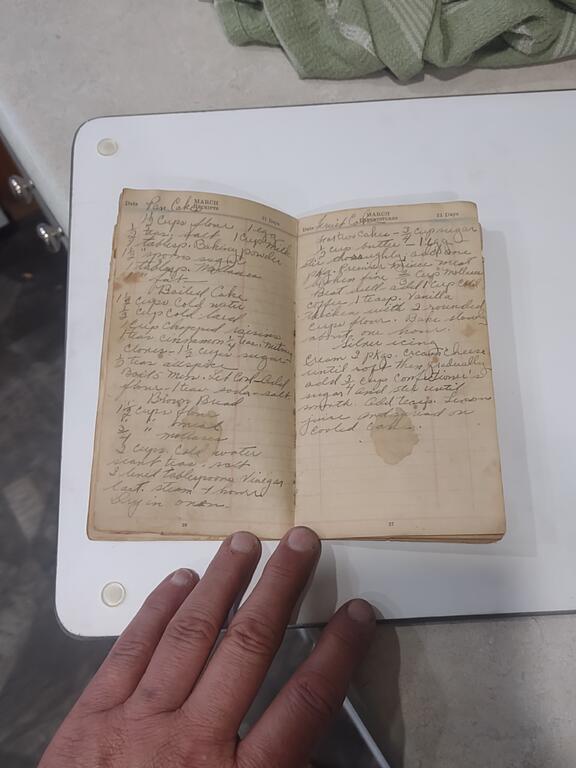 Date Pan Cakes MARCH RECEIPTS 31 Days
1 1/2 cups flour 1 egg
1/2 teas. salt 1 cup milk
3 tablesp. Baking powder
1 1/2 spoons sugar
1 tablesp. Molasses
salt
Boiled Cake
1 1/2 cups Cold water
1/2 cup Cold lard
1 Cup Chopped raisins
1 teas cinnamon 1/2 teas. Nutmeg
Cloves. 1 1/2 cups sugar
1/2 teas allspice
Boil 3 Min. Let Cool Add
flour 1 teas soda salt
Brown Bread
1 1/2 cups flour
" " meal
3/4 " molasses
2 cups Cold water
scant teas. salt
2 level tablespoons Vinegar
last. steam 4 hours
Dry in oven.
26
Date Fruit Cake MARCH EXPENDITURES 31 Days
cakes - 3/4 cup sugar
1/2 cup butter 1 egg
stir thoroughly add one
pkg. Premier Mince meat
broken up 1/2 cup Molasses
Beat well add 1 Cup Cold
coffee 1 teasp. Vanilla
thicken with 2 rounded
cups flour. Bake slow
about one hour.
icing
Cream 2 pkgs. cream cheese
until soft then gradually
add 2 1/2 cups Confectioner's
sugar and stir until
smooth Add teasp. Lemon
juice and spread on
cooled cake.
27